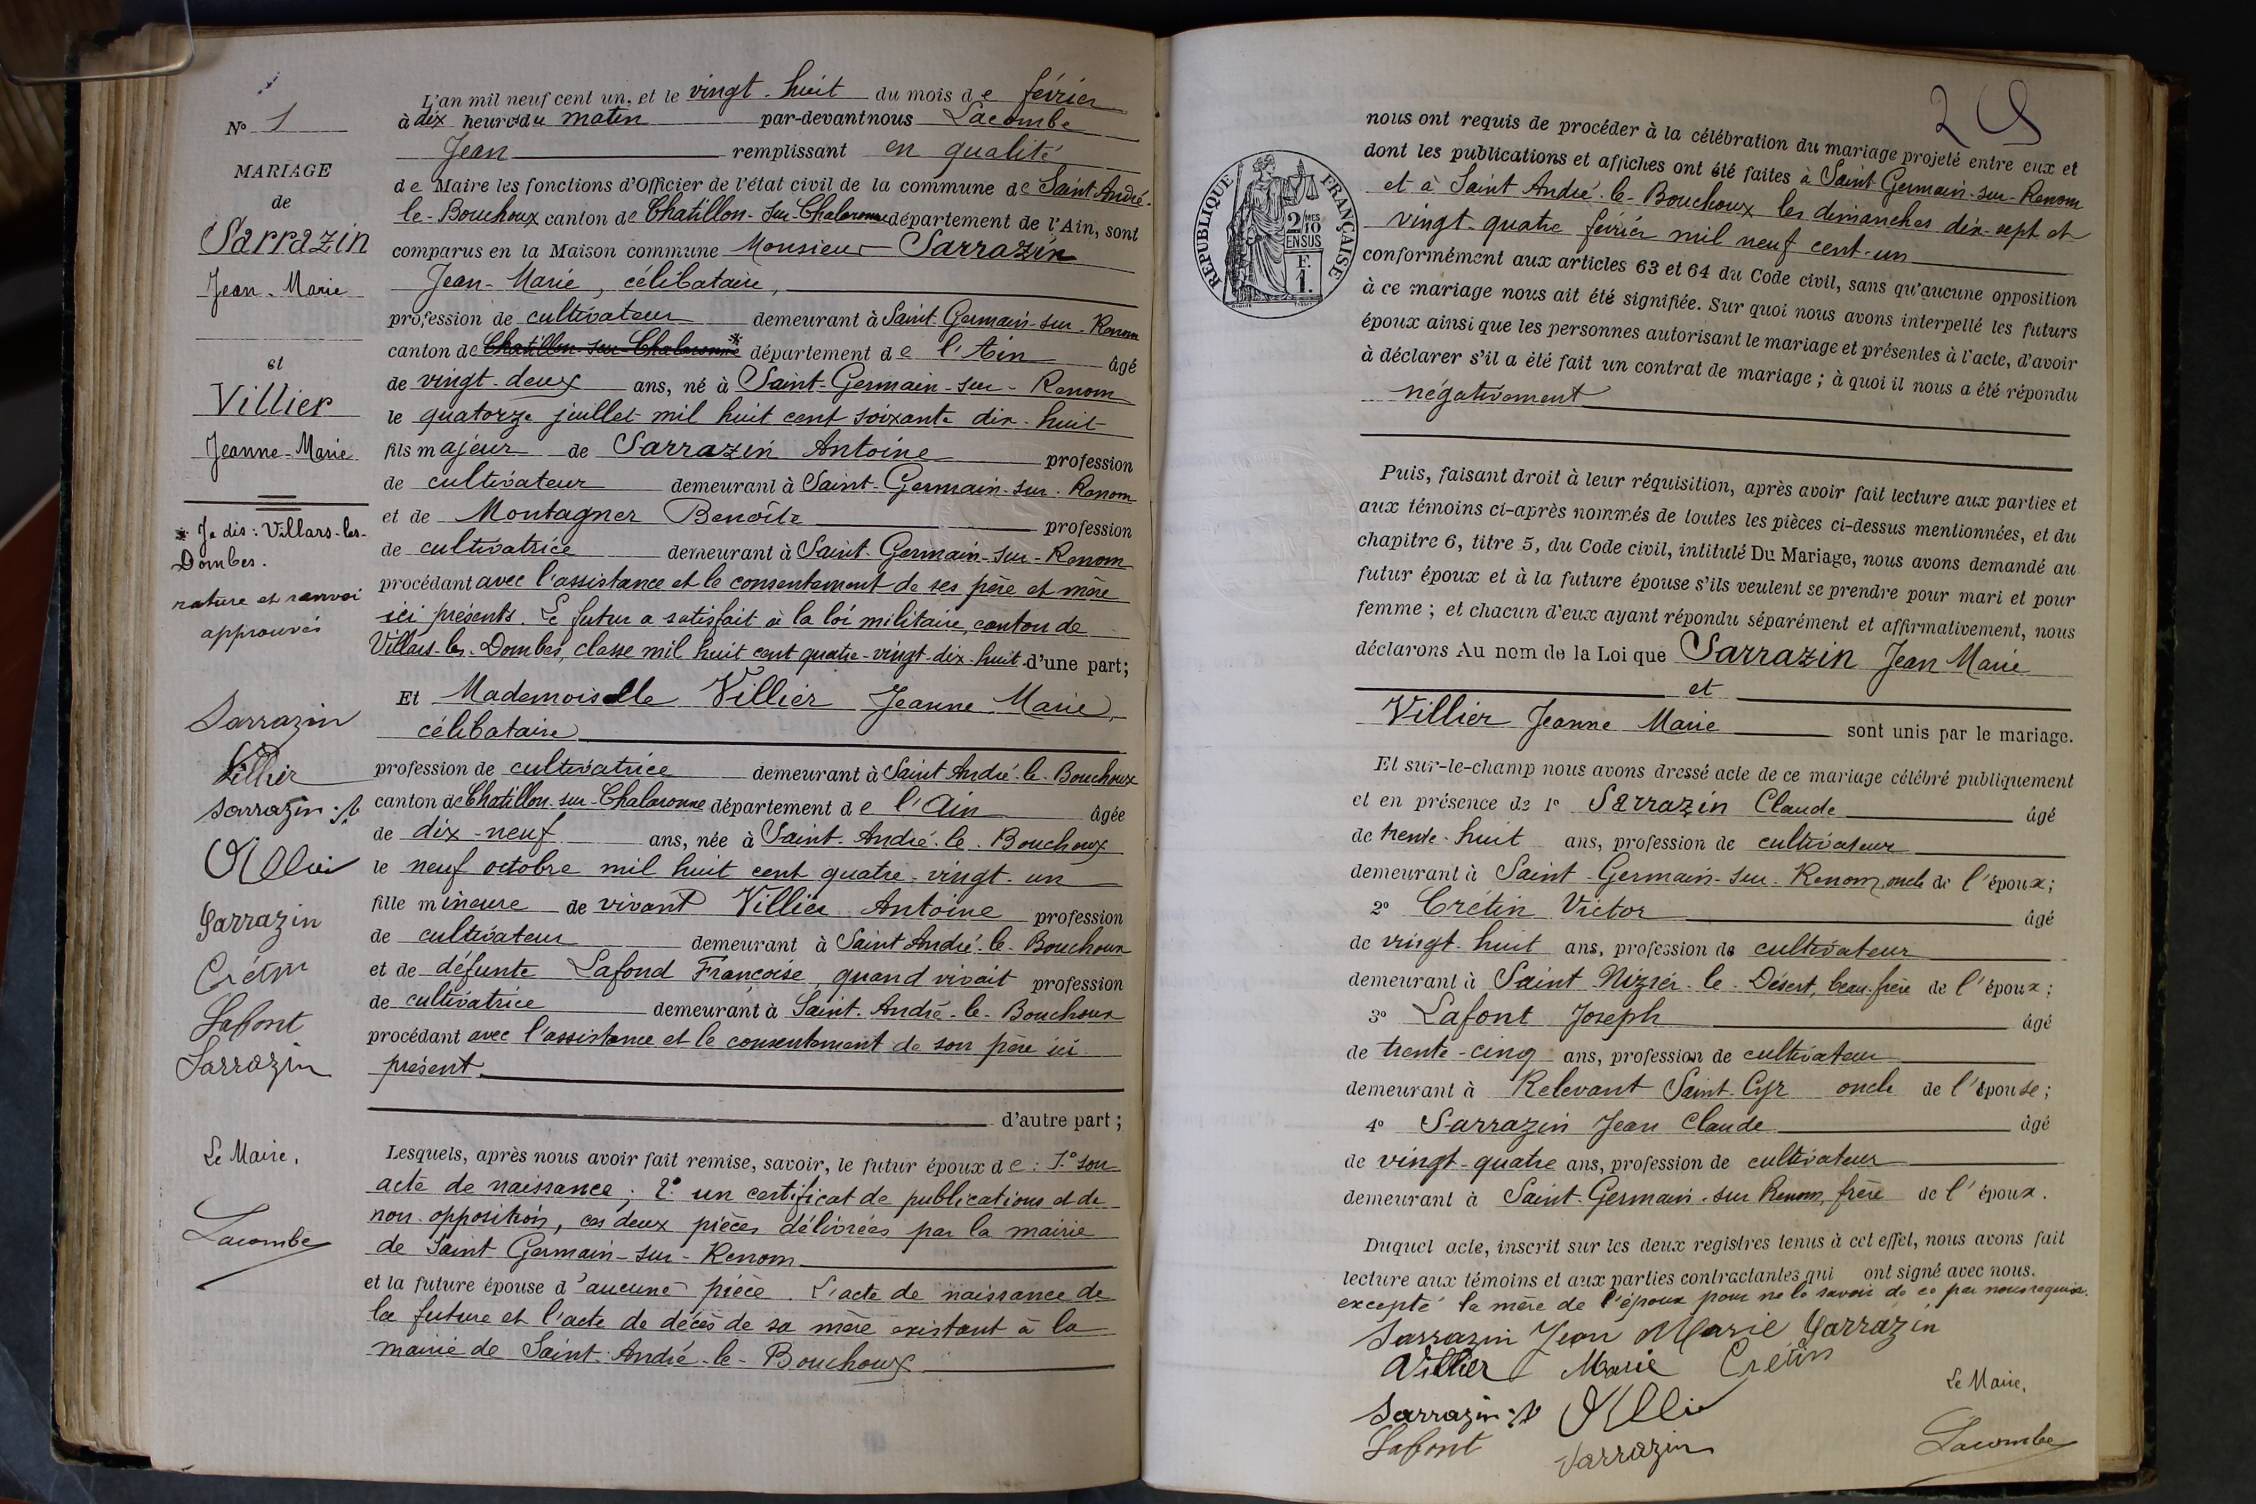 N° 1
MARIAGE
de
Sarrazin
Jean-Marie
et
Villier
Jeanne-Marie
* Je dis : Villars-les-
Dombes.
rature et renvoi
approuvés
Sarrazin
Villier
Sarrazin
Villier
Sarrazin
Crétin
Lafont
Sarrazin
Le Maire,
Lacombe
L'an mil neuf cent un, et le vingt-huit du mois de février
à dix heures du matin par-devant nous Lacombe
Jean remplissant en qualité
de Maire les fonctions d'Officier de l'état civil de la commune de Saint-André-
le-Bouchoux canton de Chatillon-sur-Chalaronne département de l'Ain, sont
comparus en la Maison commune Monsieur Sarrazin
Jean-Marie, célibataire,
profession de cultivateur demeurant à Saint-Germain-sur-Renom
canton de Chatillon-sur-Chalaronne * département de l'Ain âgé
de vingt-deux ans, né à Saint-Germain-sur-Renom
le quatorze juillet mil huit cent soixante dix-huit
fils majeur de Sarrazin Antoine profession
de cultivateur demeurant à Saint-Germain-sur-Renom
et de Montagner Benoîte profession
de cultivatrice demeurant à Saint-Germain-sur-Renom
procédant avec l'assistance et le consentement de ses père et mère
ici présents. Le futur a satisfait à la loi militaire, canton de
Villars-les-Dombes, classe mil huit cent quatre-vingt-dix-huit d'une part;
Et Mademoiselle Villier Jeanne Marie,
célibataire
profession de cultivatrice demeurant à Saint André-le-Bouchoux
canton de Chatillon-sur-Chalaronne département de l'Ain âgée
de dix-neuf ans, née à Saint-André-le-Bouchoux
le neuf octobre mil huit cent quatre-vingt-un
fille mineure de vivant Villier Antoine profession
de cultivateur demeurant à Saint André-le-Bouchoux
et de défunte Lafond Françoise, quand vivait profession
de cultivatrice demeurant à Saint-André-le-Bouchoux
procédant avec l'assistance et le consentement de son père ici
présent.
d'autre part ;
Lesquels, après nous avoir fait remise, savoir, le futur époux de : 1° son
acte de naissance ; 2° un certificat de publications et de
non opposition, ces deux pièces délivrées par la mairie
de Saint Germain-sur-Renom
et la future épouse d'aucune pièce. L'acte de naissance de
la future et l'acte de décès de sa mère existant à la
mairie de Saint-André-le-Bouchoux.
29
REPUBLIQUE FRANÇAISE
2/MES 10
EN SUS
F.
1.
nous ont requis de procéder à la célébration du mariage projeté entre eux et
dont les publications et affiches ont été faites à Saint Germain-sur-Renom
et à Saint André-le-Bouchoux les dimanches dix-sept et
vingt-quatre février mil neuf cent-un
conformément aux articles 63 et 64 du Code civil, sans qu'aucune opposition
à ce mariage nous ait été signifiée. Sur quoi nous avons interpellé les futurs
époux ainsi que les personnes autorisant le mariage et présentes à l'acte, d'avoir
à déclarer s'il a été fait un contrat de mariage ; à quoi il nous a été répondu
négativement
Puis, faisant droit à leur réquisition, après avoir fait lecture aux parties et
aux témoins ci-après nommés de toutes les pièces ci-dessus mentionnées, et du
chapitre 6, titre 5, du Code civil, intitulé Du Mariage, nous avons demandé au
futur époux et à la future épouse s'ils veulent se prendre pour mari et pour
femme ; et chacun d'eux ayant répondu séparément et affirmativement, nous
déclarons Au nom de la Loi que Sarrazin Jean Marie
et
Villier Jeanne Marie sont unis par le mariage.
Et sur-le-champ nous avons dressé acte de ce mariage célébré publiquement
et en présence de 1° Sarrazin Claude âgé
de trente-huit ans, profession de cultivateur
demeurant à Saint-Germain-sur-Renom, oncle de l'époux ;
2° Crétin Victor âgé
de vingt-huit ans, profession de cultivateur
demeurant à Saint Nizier-le-Désert, beau-frère de l'époux ;
3° Lafont Joseph âgé
de trente-cinq ans, profession de cultivateur
demeurant à Relevant Saint-Cyr oncle de l'épouse ;
4° Sarrazin Jean Claude âgé
de vingt-quatre ans, profession de cultivateur
demeurant à Saint-Germain-sur Renom, frère de l'époux.
Duquel acte, inscrit sur les deux registres tenus à cet effet, nous avons fait
lecture aux témoins et aux parties contractantes qui ont signé avec nous.
excepté la mère de l'époux pour ne le savoir de ce par nous requise.
Sarrazin Jean Marie Sarrazin
Villier Marie Crétin
Sarrazin Villier
Lafont Sarrazin
Le Maire,
Lacombe